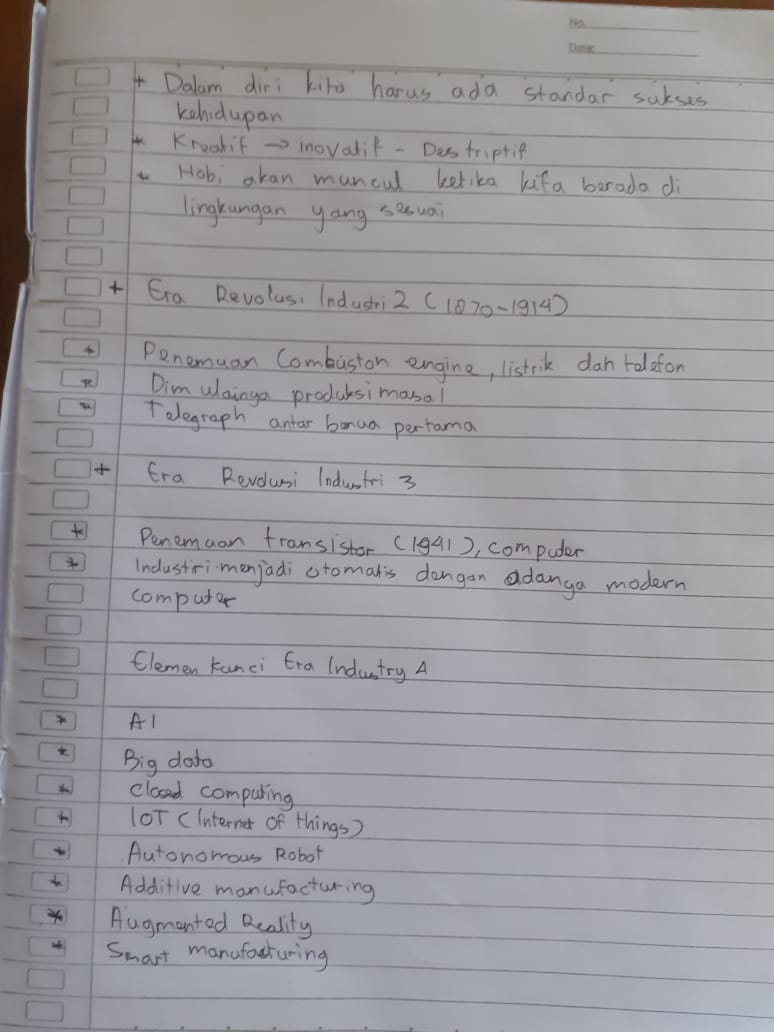 No.
Date:
* Dalam diri kita harus ada standar sukses
kehidupan
* Kreatif → inovatif - Destriptif
* Hobi akan muncul ketika kita berada di
lingkungan yang sesuai
+ Era Revolusi Industri 2 (1870-1914)
* Penemuan Combuston engine, listrik dan telefon
* Dimulainya produksi masal
* Telegraph antar benua pertama
+ Era Revolusi Industri 3
* Penemuan transistor (1941), computer
* Industiri menjadi otomatis dengan adanya modern
computer
Elemen Kunci Era Industry 4
* AI
* Big data
* Cloud computing
* IOT (Internet of things)
* Autonomous Robot
* Additive manufacturing
* Augmented Reality
* Smart manufacturing